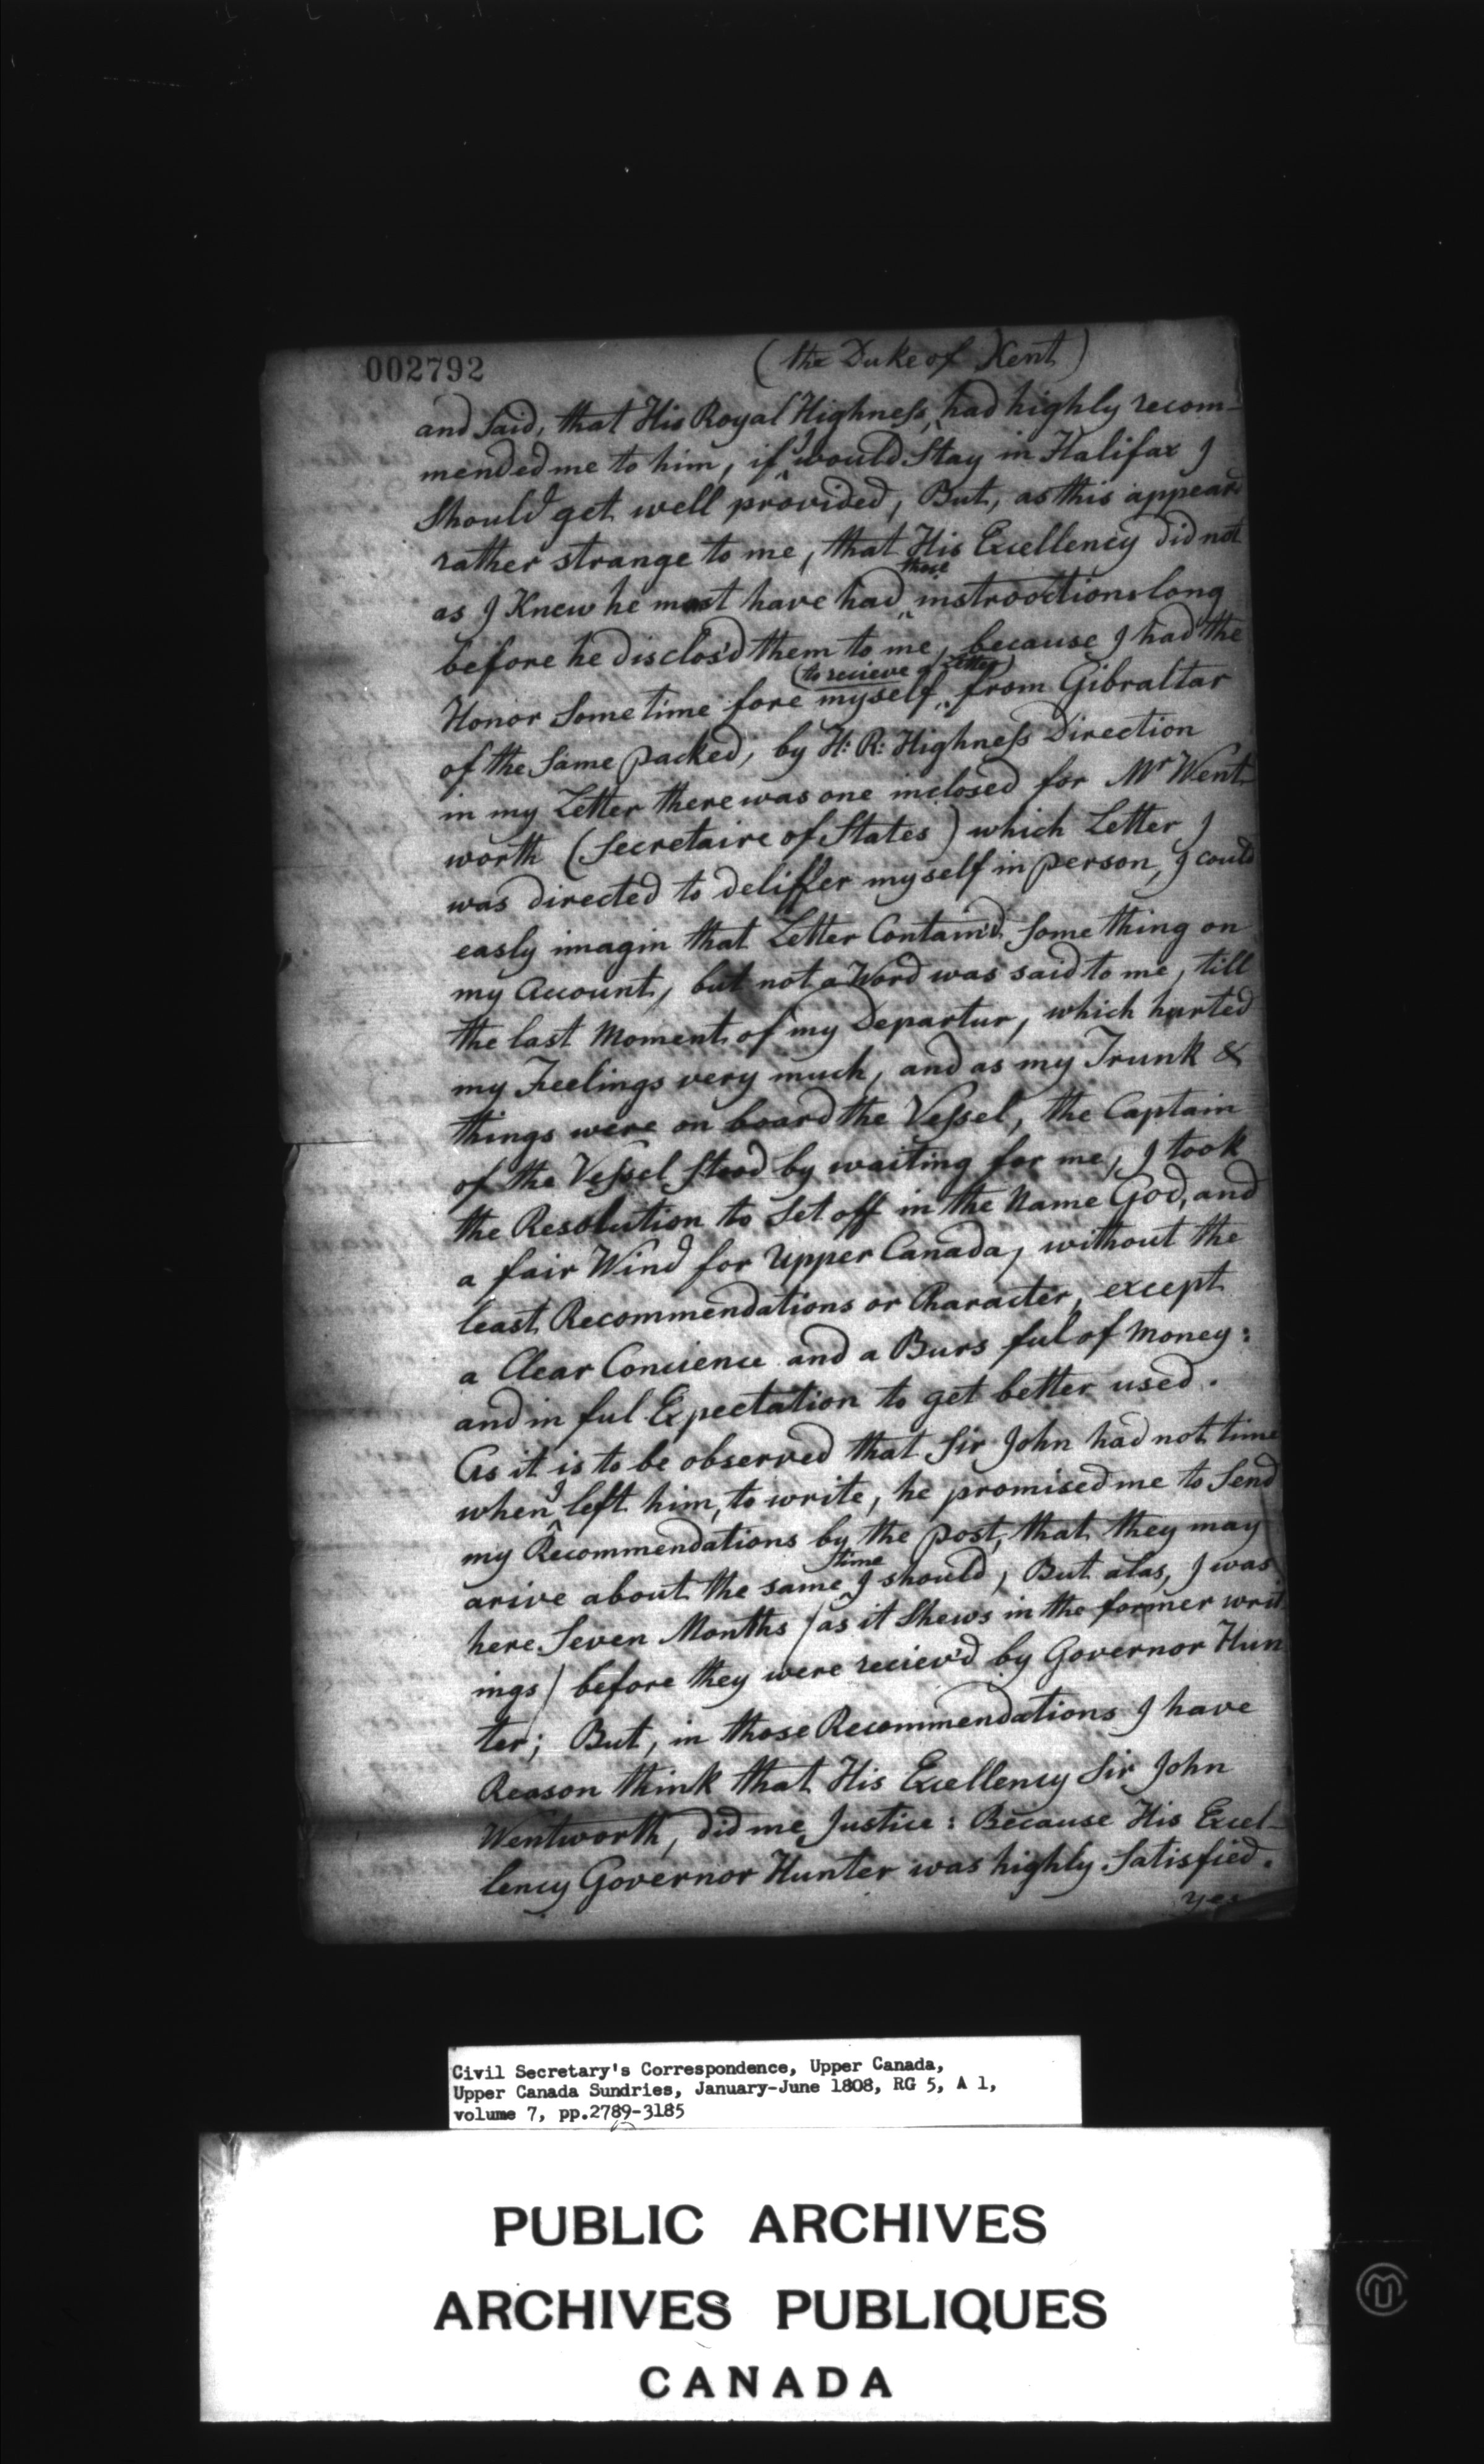 002792
(the Duke of Kent)
and Said, that His Royal Highness, ^ had highly recom-
mended me to him, if ^ I would Stay in Halifax I
Should get well provided, But, as this appear
rather strange to me, that His Excellency did not
as I Knew he most have had ^ these instrooctions long
before he disclos'd them to me, because I had the
Honor Some time fore myself ^ (to recieve a Letter) from Gibraltar
of the Same packed, by H: R: Highness Direction
in my Letter there was one inclosed for Mr Went
worth (Secretaire of States) which Letter I
was directed to deliffer myself in person, I could
easly imagin that Letter Contain'd Some thing on
my Account, but not a Word was said to me, till
the last Moment of my Departur, which hurted
my Feelings very much, and as my Trunk &
things were on board the Vessel, the Captain
of the Vessel Stood by waiting for me, I took
the Resolution to Set off in the Name God, and
a fair Wind for Upper Canada, without the
least Recommendations or Character, except
a Clear Concience and a Burs ful of Money:
and in ful Expectation to get better used.
As it is to be observed that Sir John had not time
when ^ I left him, to write, he promised me to Send
my Recommendations by the post, that they may
arive about the same time I should, But alas, I was
here Seven Months / as it Shews in the former writ
ings / before they were reciev'd by Governor Hun
ter; But, in those Recommendations I have
Reason think that His Excellency Sir John
Wentworth, did me Justice: Because His Excel-
lency Governor Hunter was highly Satisfied.
yes
Civil Secretary's Correspondence, Upper Canada,
Upper Canada Sundries, January-June 1808, RG 5, A 1,
volume 7, pp.2789-3185
PUBLIC ARCHIVES
ARCHIVES PUBLIQUES
CANADA